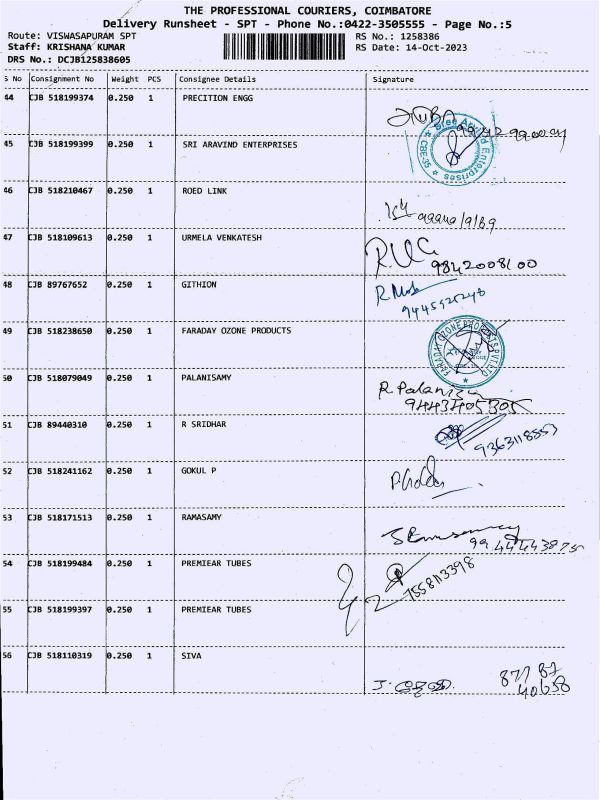 THE PROFESSIONAL COURIERS, COIMBATORE
Delivery Runsheet - SPT - Phone No.:0422-3505555 - Page No.:5
Route: VISWASAPURAM SPT RS No.: 1258386
Staff: KRISHANA KUMAR RS Date: 14-Oct-2023
DRS No.: DCJB125838605
S No Consignment No Weight PCS Consignee Details Signature
44 CJB 518199374 0.250 1 PRECITION ENGG
45 CJB 518199399 0.250 1 SRI ARAVIND ENTERPRISES
46 CJB 518210467 0.250 1 ROED LINK
47 CJB 518109613 0.250 1 URMELA VENKATESH
R.V.G
9842008100
48 CJB 89767652 0.250 1 GITHION
49 CJB 518238650 0.250 1 FARADAY OZONE PRODUCTS
FARADAY OZONE PRODUCTS PVT LTD
50 CJB 518079049 0.250 1 PALANISAMY
R Palanisa
9443405305
51 CJB 89440310 0.250 1 R SRIDHAR
9363118553
52 CJB 518241162 0.250 1 GOKUL P
53 CJB 518171513 0.250 1 RAMASAMY
99 44443875
54 CJB 518199484 0.250 1 PREMIEAR TUBES
7558113398
55 CJB 518199397 0.250 1 PREMIEAR TUBES
56 CJB 518110319 0.250 1 SIVA
877 87
40658